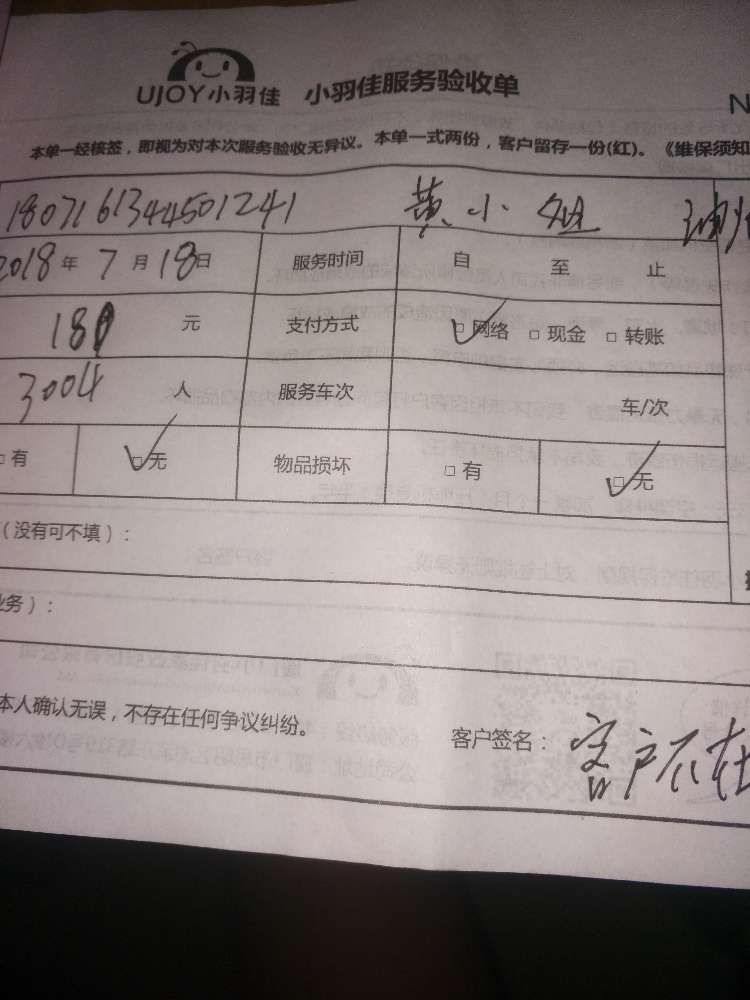 UJOY小羽佳 小羽佳服务验收单 N
本单一经核签，即视为对本次服务验收无异议。本单一式两份，客户留存一份(红)。《维保须知
180716134450 1241 黄小
2018年7月18日 服务时间 自 至 止
元 支付方式 □网络 □现金 □转账
3004 人 服务车次 车/次
□有 □无 物品损坏 □有 □无
（没有可不填）：
业务）：
本人确认无误，不存在任何争议纠纷。 客户签名：客户不在